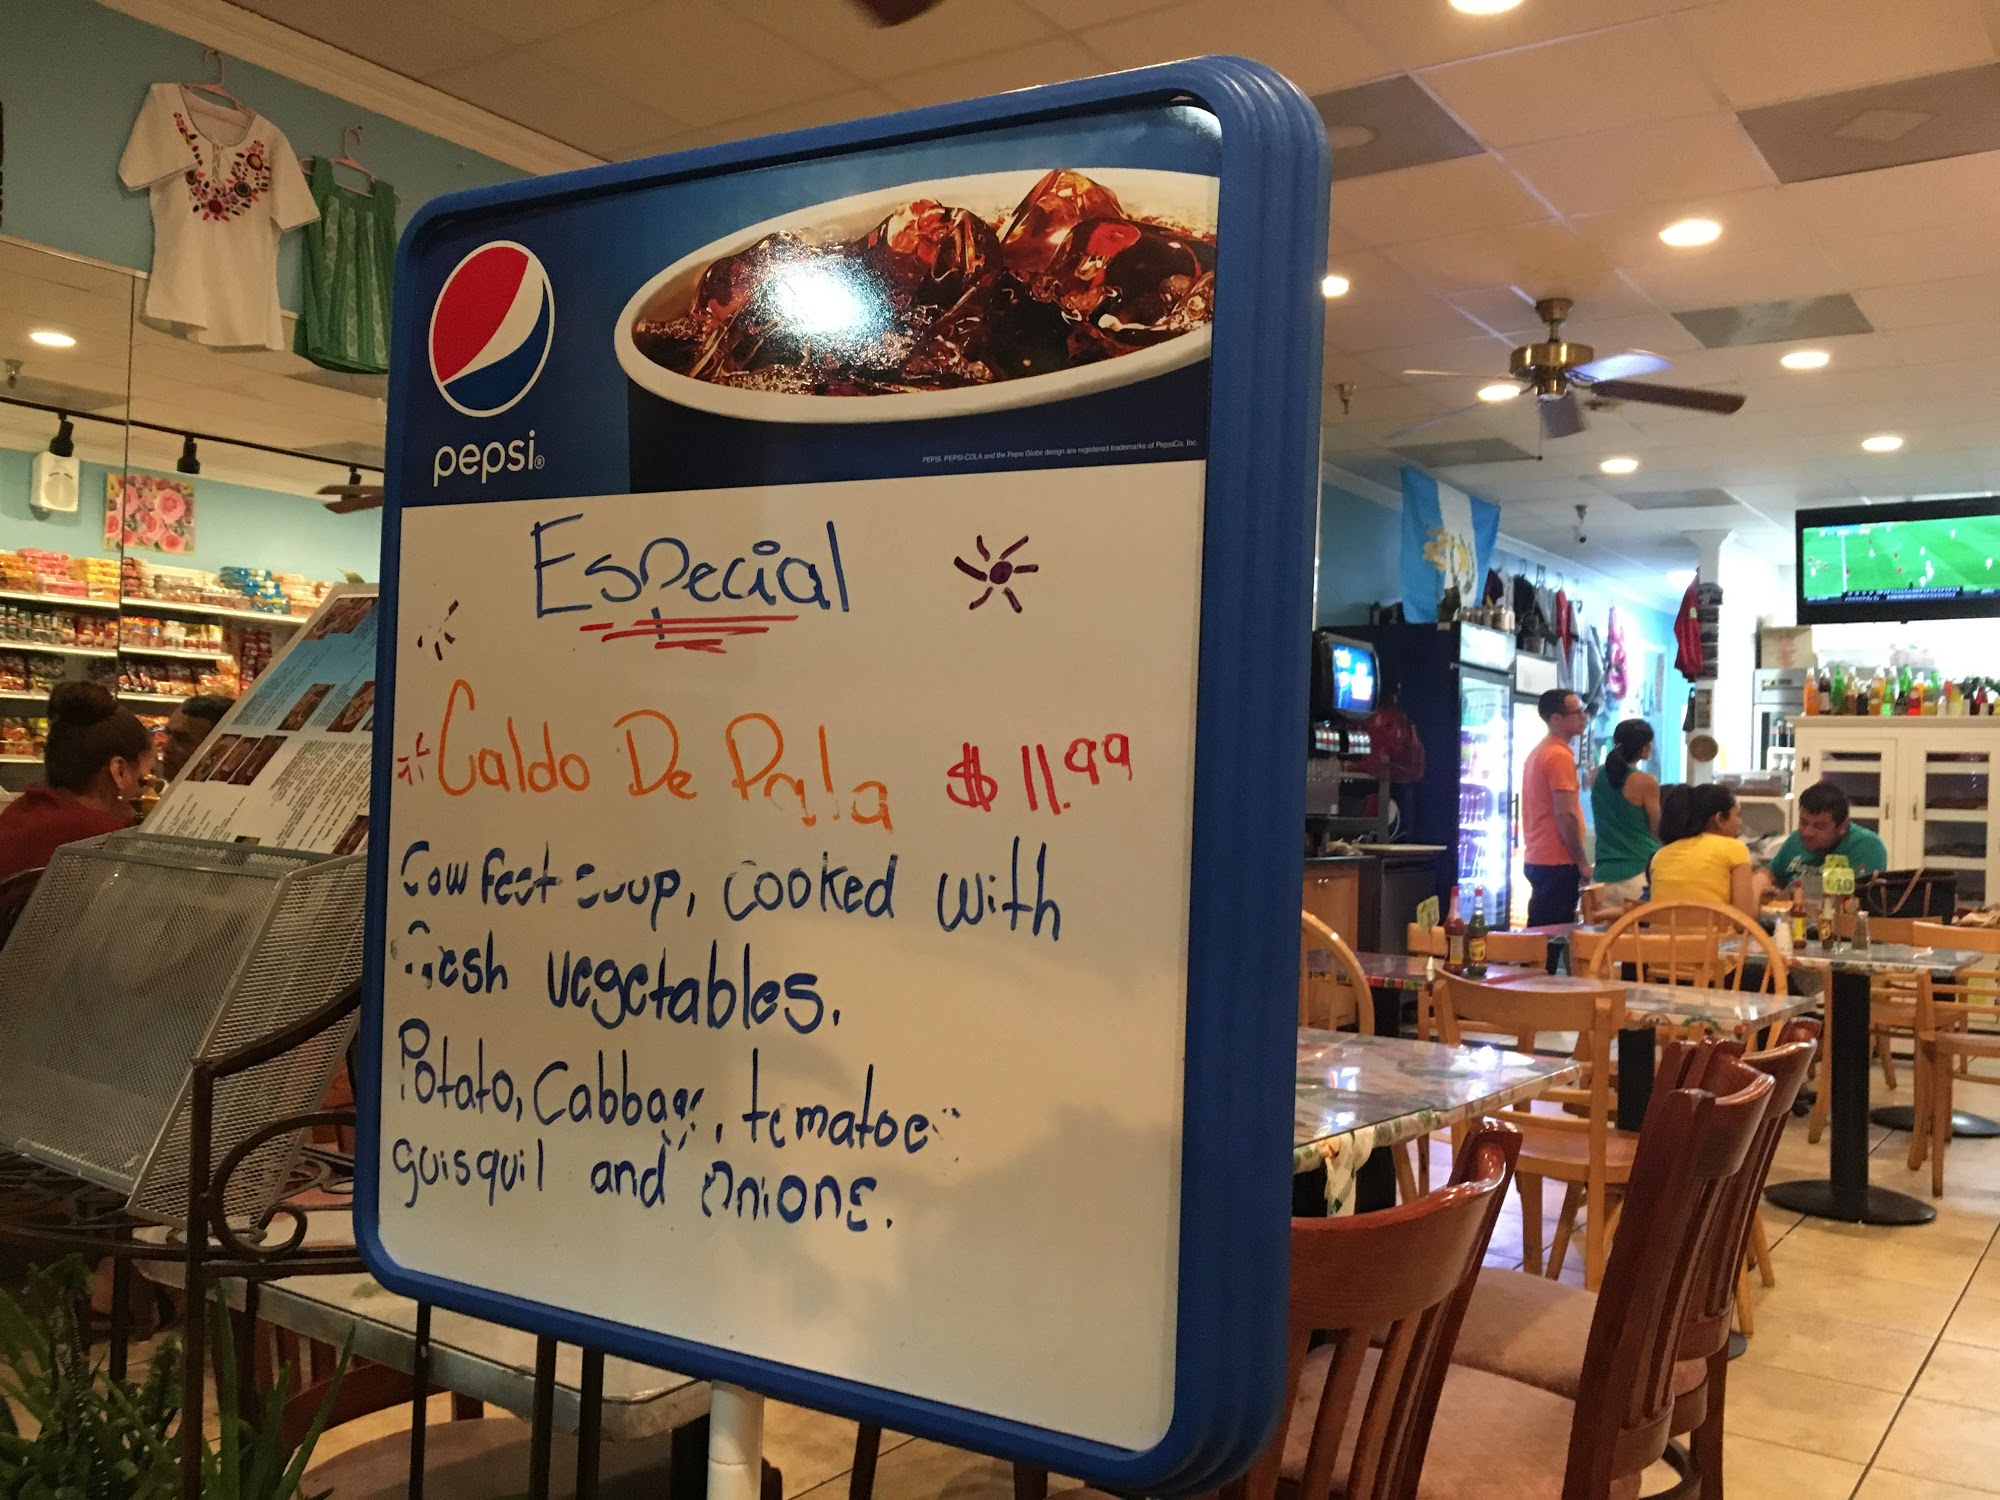 pepsi®
PEPSI, PEPSI-COLA and the Pepsi Globe design are registered trademarks of PepsiCo, Inc.
Especial
Caldo De Pata $11.99
Cow feet soup, cooked with
fresh vegetables.
Potato, Cabbage, tomatoes
guisquil and onions.